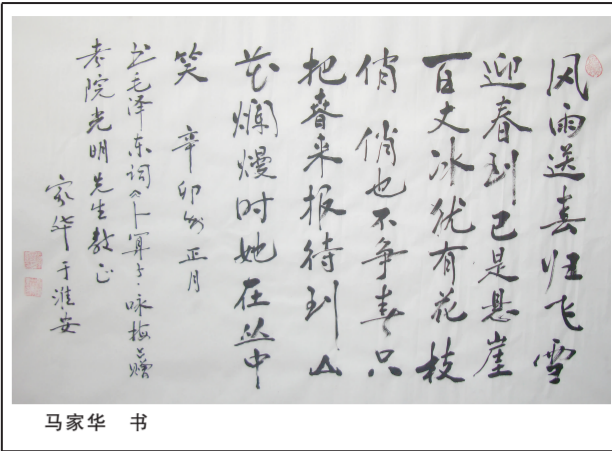 风雨送春归飞雪
迎春到已是悬崖
百丈冰犹有花枝
俏 俏也不争春只
把春来报待到山
花爛熳时她在丛中
笑 辛卯年正月
书毛泽东词《卜算子·咏梅》赠
院光明先生教正
家华于淮安
马家华 书